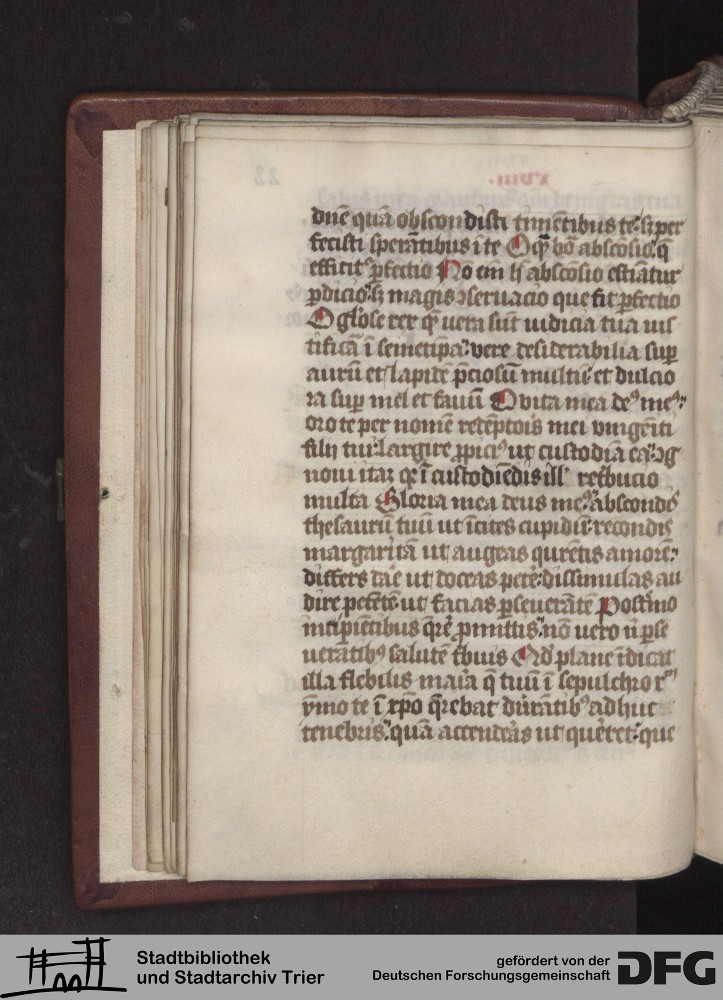 dn̄e quā obscondisti timētibus te: sꝫ per
fecisti sperātibus ī te O qͣ bō absco͂sio. q̄
efficit᷑ ꝑfectio Nō em̄ h̄ absco͂sio estīatur
ꝑdicio: sꝫ magis ꝯseruacio que fit ꝑfectio
O gl̓ose rex qͣ uera sūt iudicia tua ius
tificā ī semetip̄a: vere desiderabilia suꝑ
aurū et lapidē p̄ciosū multū et dulcio
ra suꝑ mel et fauū O vita mea deꝰ meꝰ:
oro te per nomē redēptoīs mei vnigēiti
filij tui: largire ꝓpiciꝰ ut custodiā ea: ꝯg
noui itaqꝫ qꝛ ī custodiēdis ill' ret̓bucio
multa Gloria mea deus meꝰ abscondis
thesaurū tuū ut īcites cupidū: recondis
margaritā ut augeas qurētis amorē:
differs dare ut doceas petē: dissimulas au
dire petētē ut facias ꝑseuerātē Postīmo
incipiētibus q̄re ꝓmittis: nō uero n̄ ꝑse
ueratībꝰ salutē t̓buis Ad plane īdicat
illa flebilis maīa q̄ tuū ī sepulchro
ymo te ī xp̄o q̄rebat dūratibꝰ adhuc
tenebris: quā accendeās ut quēret: que
Stadtbibliothek
und Stadtarchiv Trier
gefördert von der
Deutschen Forschungsgemeinschaft
DFG